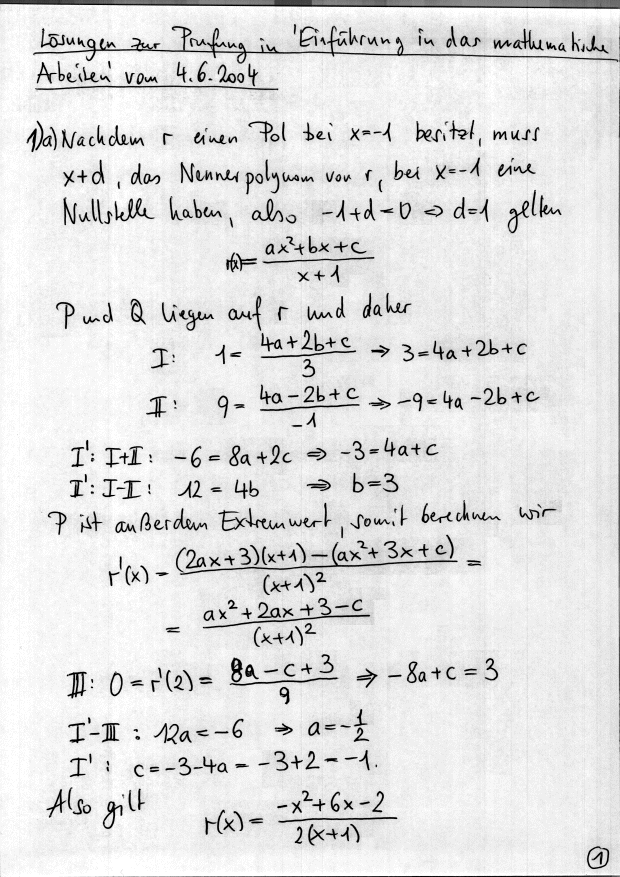 Lösungen zur Prüfung in 'Einführung in das mathematische
Arbeiten' vom 4.6.2004
1)a) Nachdem r einen Pol bei x=-1 besitzt, muss
x+d, das Nennerpolynom von r, bei x=-1 eine
Nullstelle haben, also -1+d=0 ⇒ d=1 gelten
r(x)= (ax²+bx+c)/(x+1)
P und Q liegen auf r und daher
I: 1= (4a+2b+c)/3 ⇒ 3=4a+2b+c
II: 9= (4a-2b+c)/-1 ⇒ -9=4a-2b+c
I': I+II: -6=8a+2c ⇒ -3=4a+c
II': I-II: 12=4b ⇒ b=3
P ist außerdem Extremwert, somit berechnen wir
r'(x) = ((2ax+3)(x+1)-(ax²+3x+c))/(x+1)² =
= (ax²+2ax+3-c)/(x+1)²
III: 0=r'(2)= (8a-c+3)/9 ⇒ -8a+c=3
I'-III: 12a=-6 ⇒ a=-1/2
I': c=-3-4a=-3+2=-1.
Also gilt
r(x)= (-x²+6x-2)/(2(x+1))
1